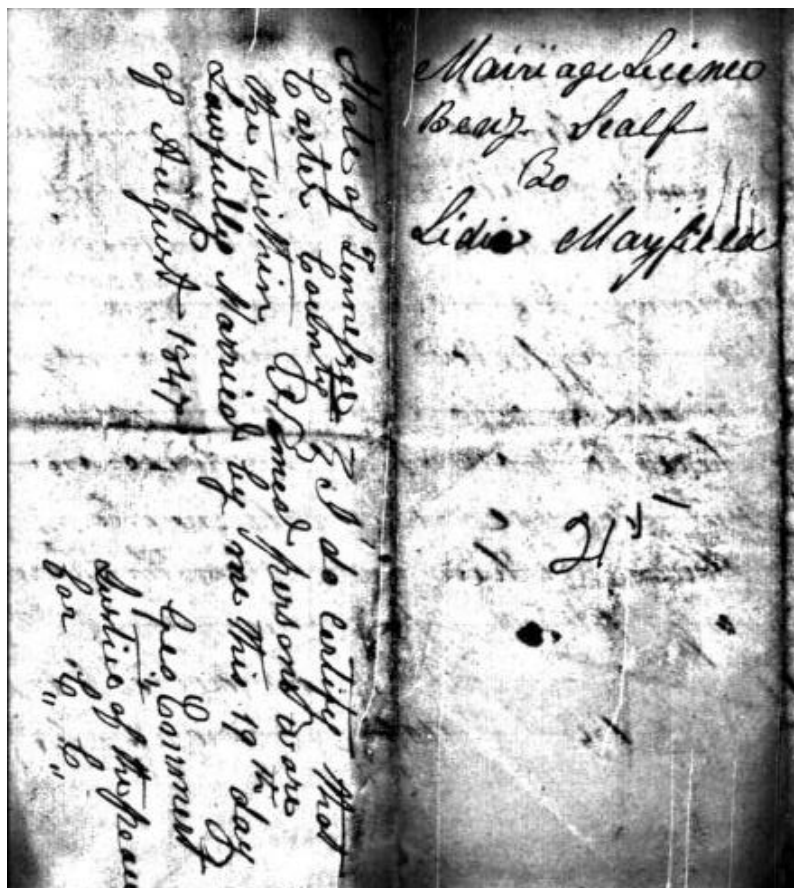 Mairiage Licineo
Benj. Scalf
To
Lidia Mayfield
21st
State of Tennessee
Carter County } I do certify that
the within named persons ware
Lawfully Married by me this 19th day
of August 1847
Geo Emmert
Justice of the peace
for C" C"